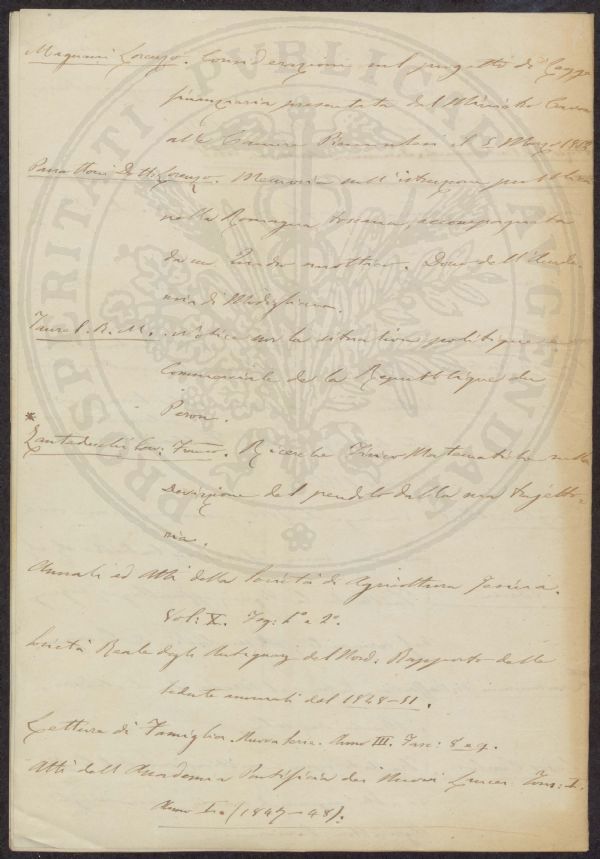 Magnani Lorenzo. Considerazioni sul progetto di Legge
finanziaria presentata dal Ministro
alle Camere il 5 Marzo
Dott. Lorenzo. Memoria sull'istruzione pubblica
nella Romagna toscana, accompagnata
da un Quadro sinottico. Dono dell'Accade-
mia di Modigliana.
B. M. Notice sur la situation politique et
Commerciale de la Republique du
Perou.
* Zantedeschi Cav: Franco. Ricerche Fisico Matematiche sulla
Deviazione del pendolo dalla sua trajetto-
ria.
Annali ed Atti della Società di Agricoltura Jesina.
Vol: X. Fog: 1º e 2º.
Società Reale degli Antiquarj del Nord. Rapporto delle
sedute annuali del 1848-51.
Letture di Famiglia. Nuova serie. Anno III. Fasc: 8 e 9.
Atti dell'Accademia Pontificia dei Nuovi Lincei. Tom: I.
Anno I. (1847-48).
PROSPERITATI PVBLICAE AVGENDAE